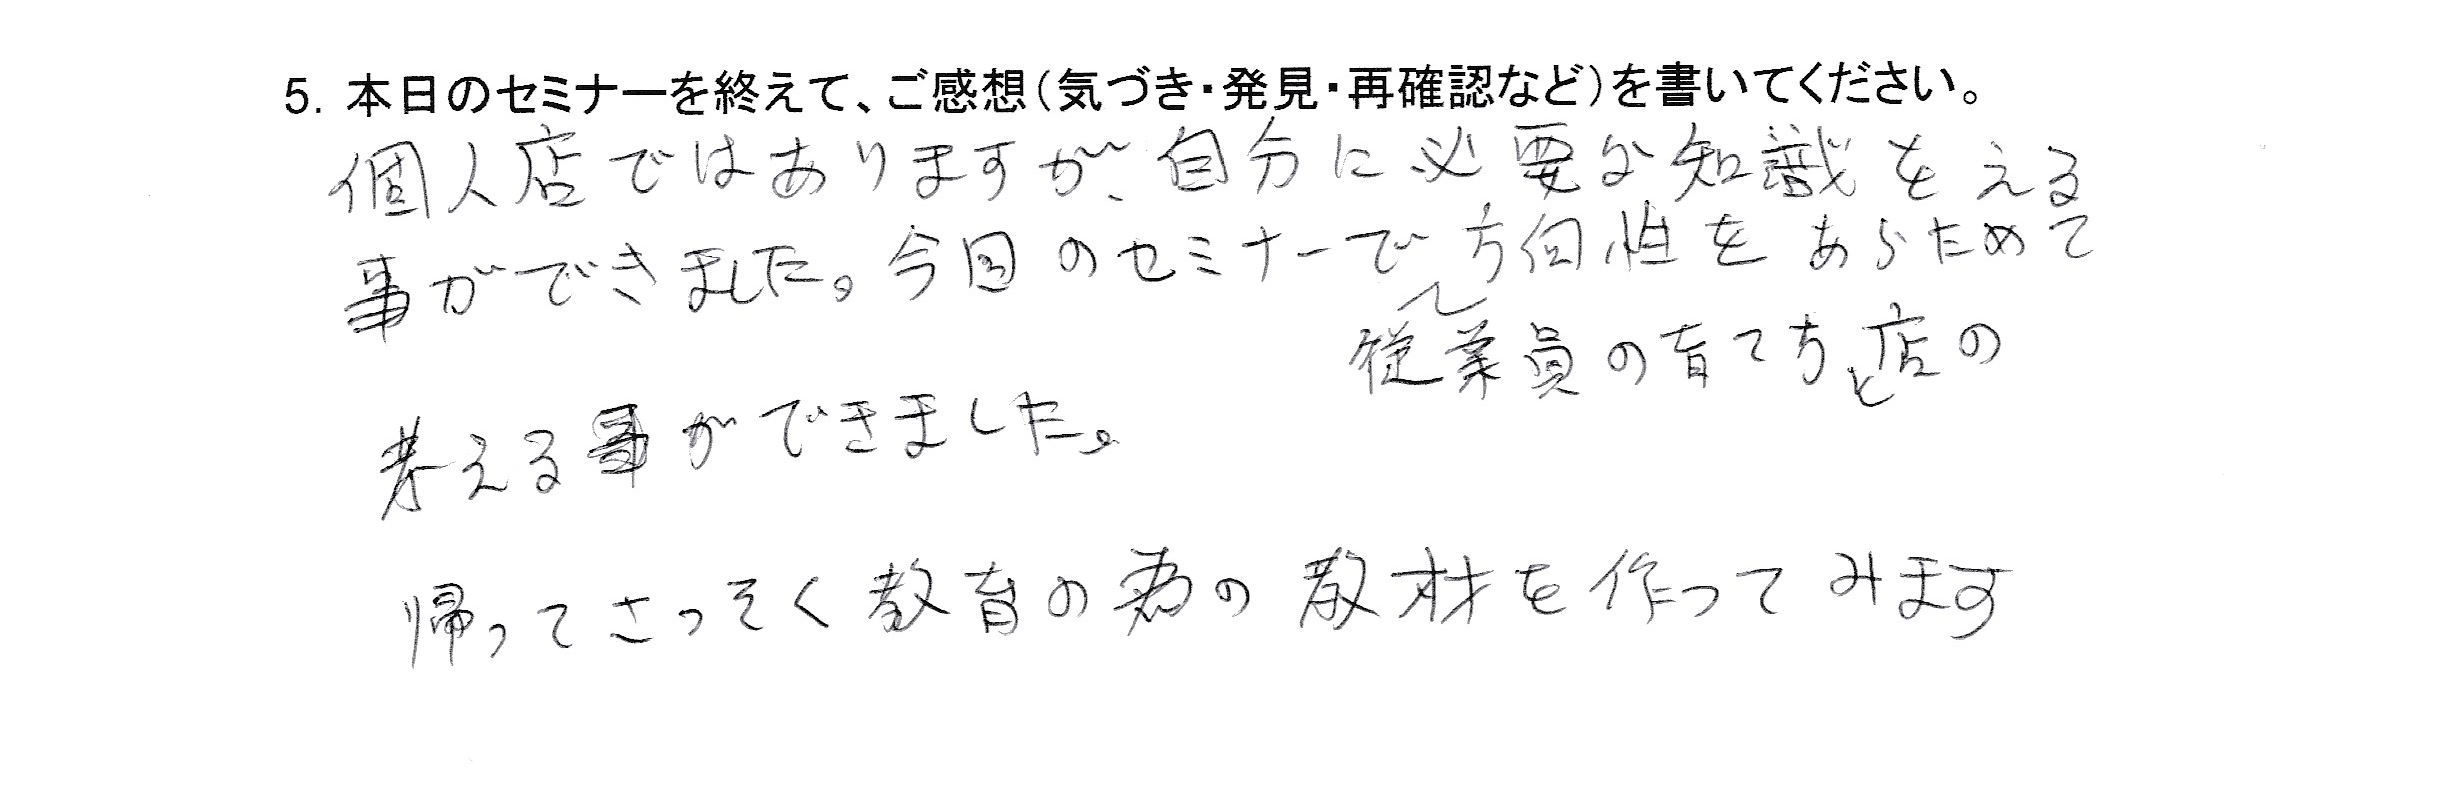 5. 本日のセミナーを終えて、ご感想（気づき・発見・再確認など）を書いてください。
個人店ではありますが、自分に必要な知識をえる
事ができました。今回のセミナーで方向性をあらためて
従業員の育て方と店の
考える事ができました。
帰ってさっそく教育の為の教材を作ってみます